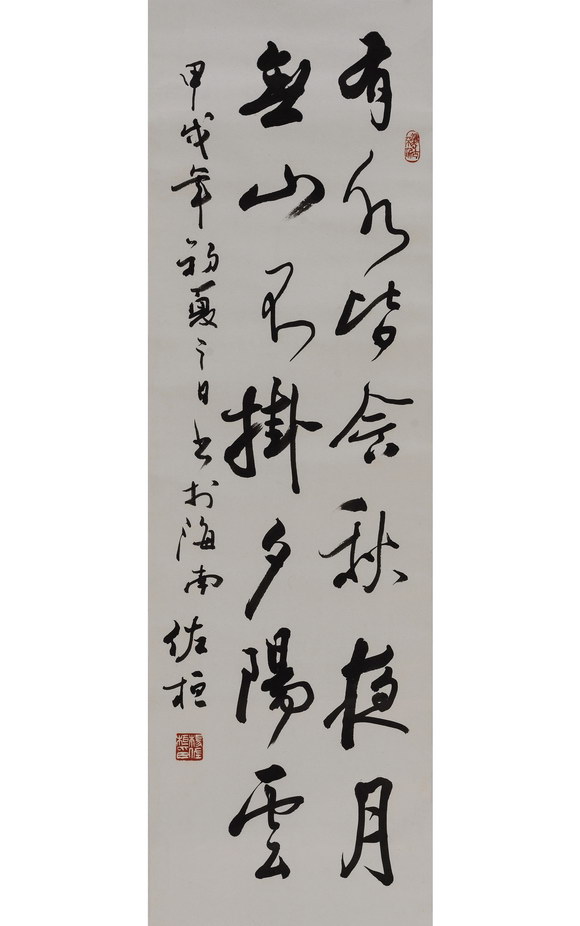 有水皆含秋夜月
無山不掛夕陽雲
甲戌年初夏之日书於海南
佐桓